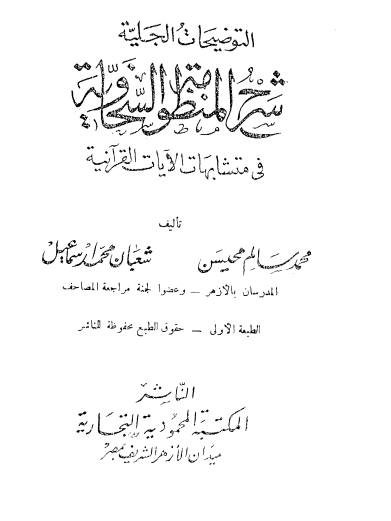 التوضيحات الجلية
شرح المنظومة السخاوية
في متشابهات الآيات القرآنية
تأليف
محمد سالم محيسن شعبان محمد إسماعيل
المدرسان بالأزهر — وعضوا لجنة مراجعة المصاحف
الطبعة الاولى — حقوق الطبع محفوظة للناشر
الناشر
المكتبة المحمودية التجارية
ميدان الأزهر الشريف بمصر